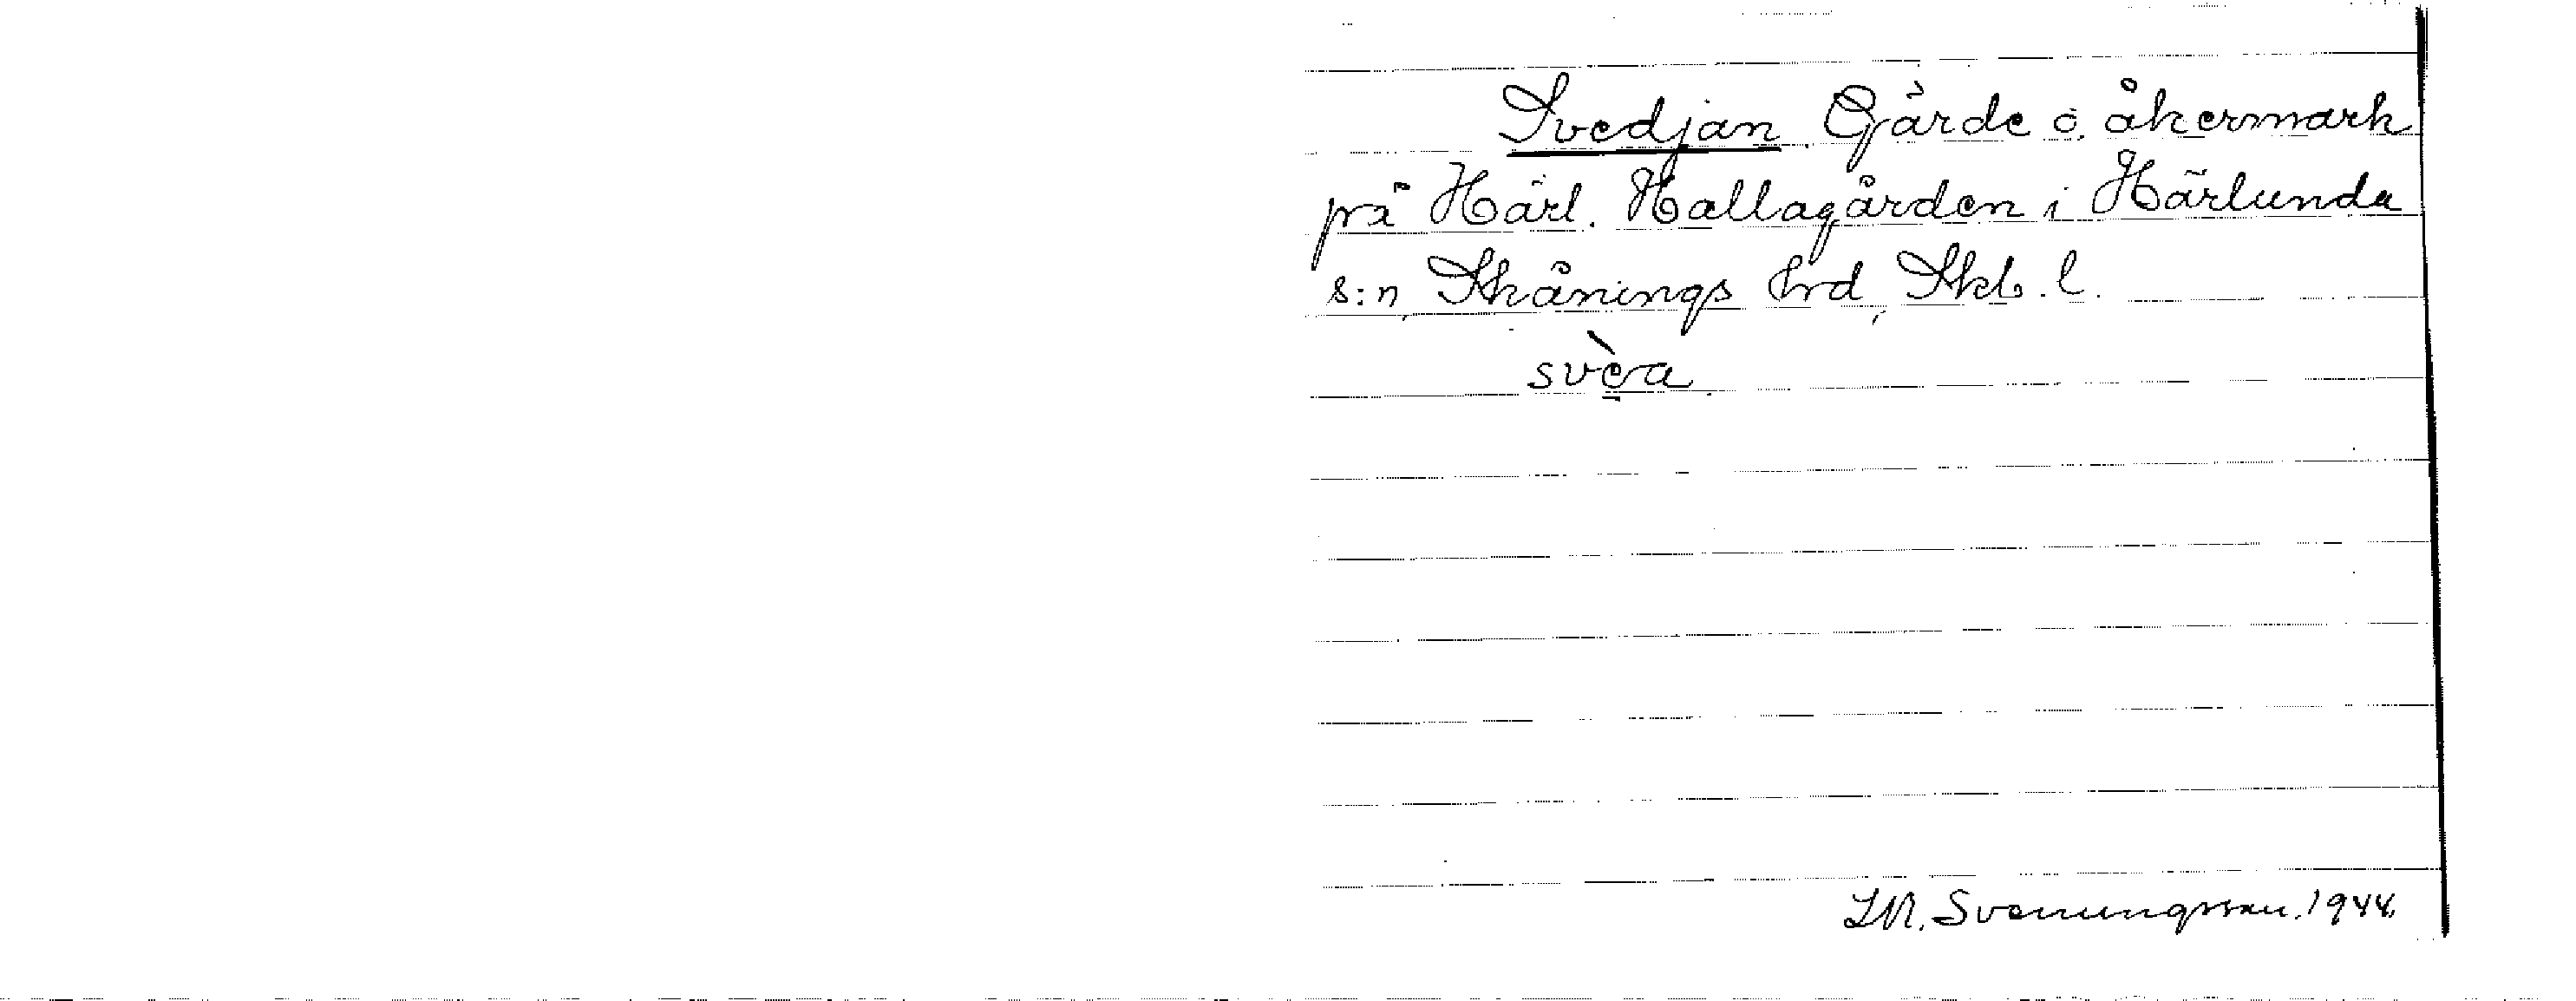 Svedjan Gärde o. åkermark
på Härl. Hallagården i Härlunda
s:n, Skånings hrd, Skb. l.
svèa
Svenungsson. 1944.